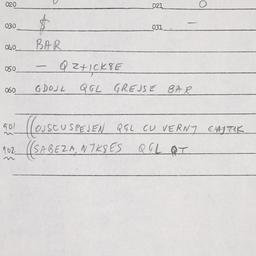 020 021 0
030 $ 031 —
040 BAR
050 — QZ+ICK8E
060 GDOJL QGL GREJSE BAR
901 ((OJSCUSPEJEN QGL CU VERNT
902 ((SABEZA, N7K9ES QGL QT